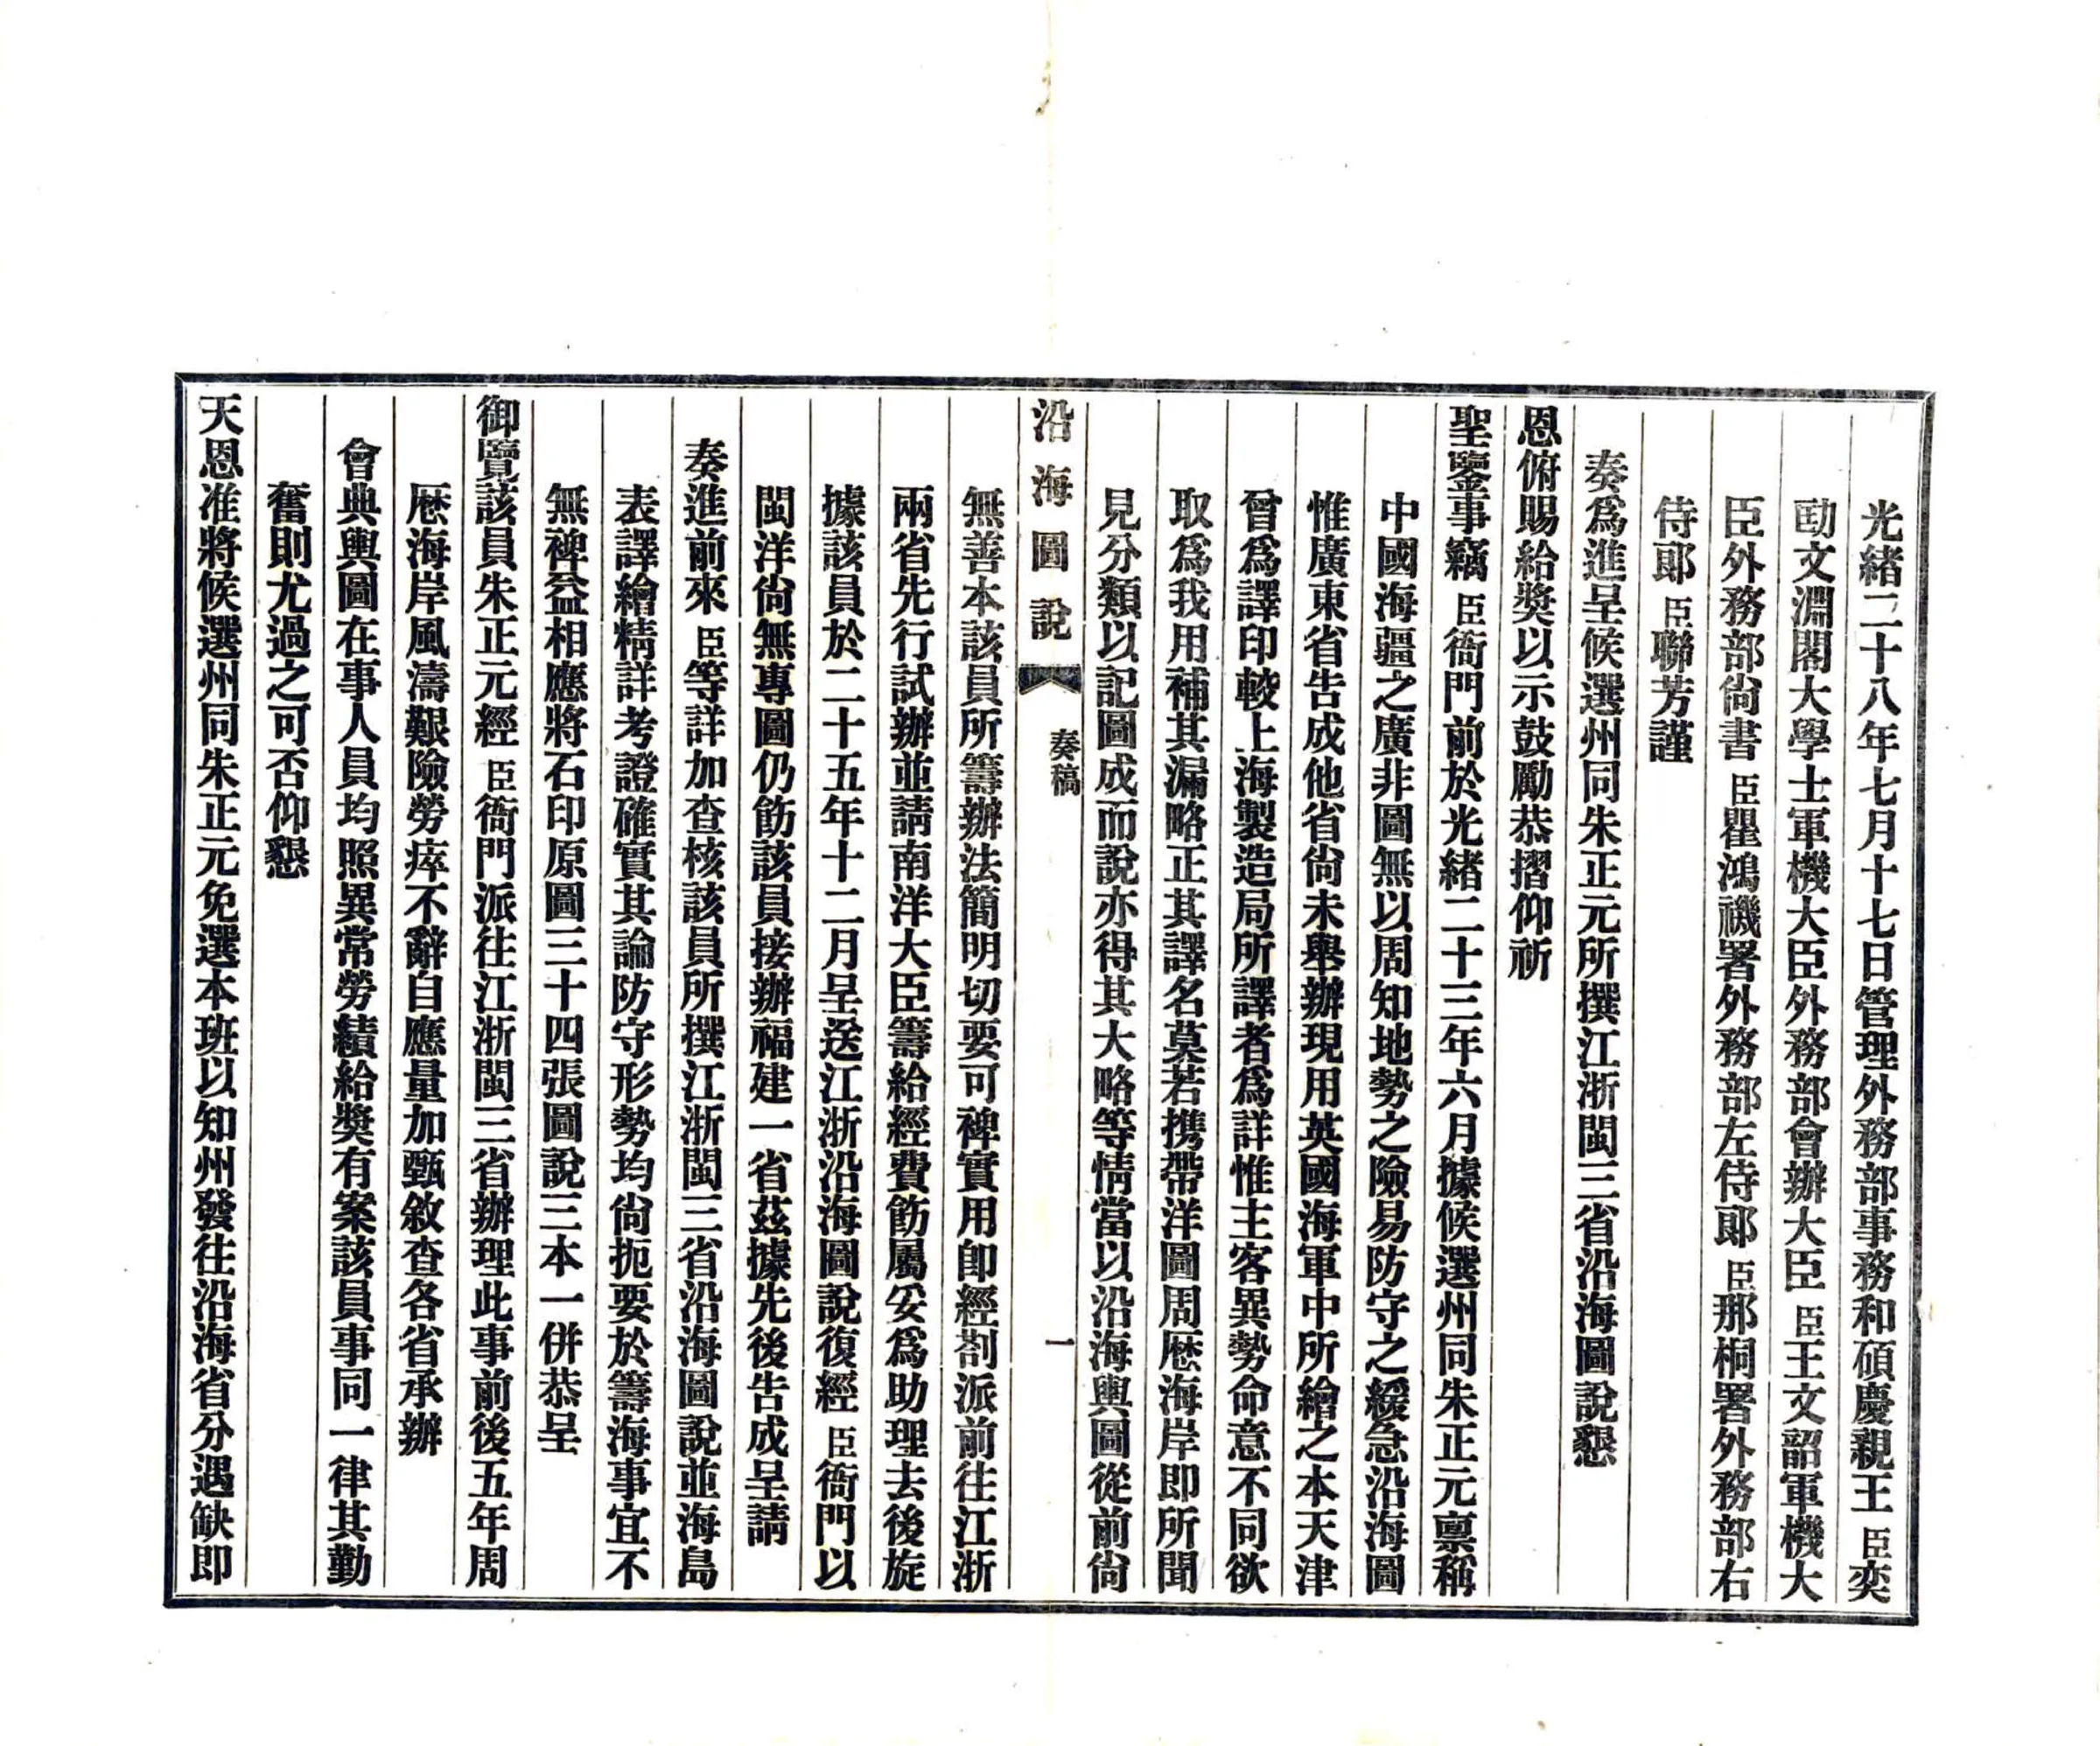 光緖二十八年七月十七日管理外務部事務和碩慶親王臣奕
劻文淵閣大學士軍機大臣外務部會辦大臣臣王文韶軍機大
臣外務部尙書臣瞿鴻禨署外務部左侍郞臣那桐署外務部右
侍郞臣聯芳謹
奏爲進呈候選州同朱正元所撰江浙閩三省沿海圖說懇
恩俯賜給奬以示鼓勵恭摺仰祈
聖鑒事竊臣衙門前於光緖二十三年六月據候選州同朱正元稟稱
中國海疆之廣非圖無以周知地勢之險易防守之緩急沿海圖
惟廣東省告成他省尙未舉辦現用英國海軍中所繪之本天津
曾爲譯印較上海製造局所譯者爲詳惟主客異勢命意不同欲
取爲我用補其漏略正其譯名莫若携帶洋圖周歷海岸即所聞
見分類以記圖成而說亦得其大略等情當以沿海輿圖從前尙
沿海圖說 奏稿 一
無善本該員所籌辦法簡明切要可裨實用卽經劄派前往江浙
兩省先行試辦並請南洋大臣籌給經費飭屬妥爲助理去後旋
據該員於二十五年十二月呈送江浙沿海圖說復經臣衙門以
閩洋尙無專圖仍飭該員接辦福建一省茲據先後告成呈請
奏進前來臣等詳加查核該員所撰江浙閩三省沿海圖說並海島
表譯繪精詳考證確實其論防守形勢均尙扼要於籌海事宜不
無裨益相應將石印原圖三十四張圖說三本一併恭呈
御覽該員朱正元經臣衙門派往江浙閩三省辦理此事前後五年周
歷海岸風濤艱險勞瘁不辭自應量加甄敘查各省承辦
會典輿圖在事人員均照異常勞績給奬有案該員事同一律其勤
奮則尤過之可否仰懇
天恩准將候選州同朱正元免選本班以知州發往沿海省分遇缺即